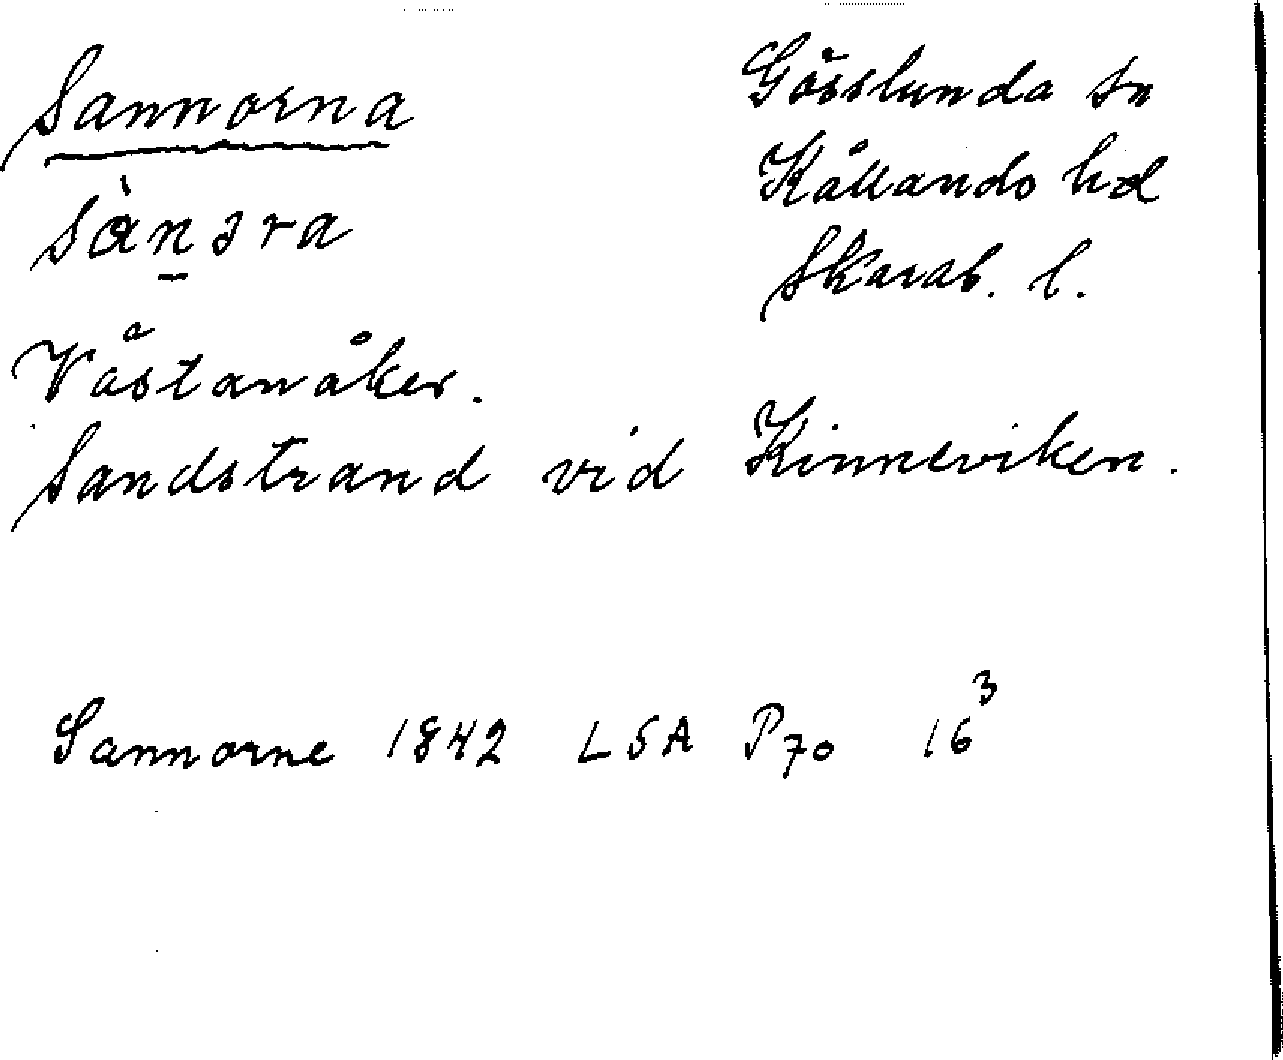 Sannorna
sàn̲ɜra
Västanåker.
Sandstrand vid Kinneviken.
Gösslunda sn
Kållands hd
Skarab. l.
Sannorne 1842 LSA P70 16³